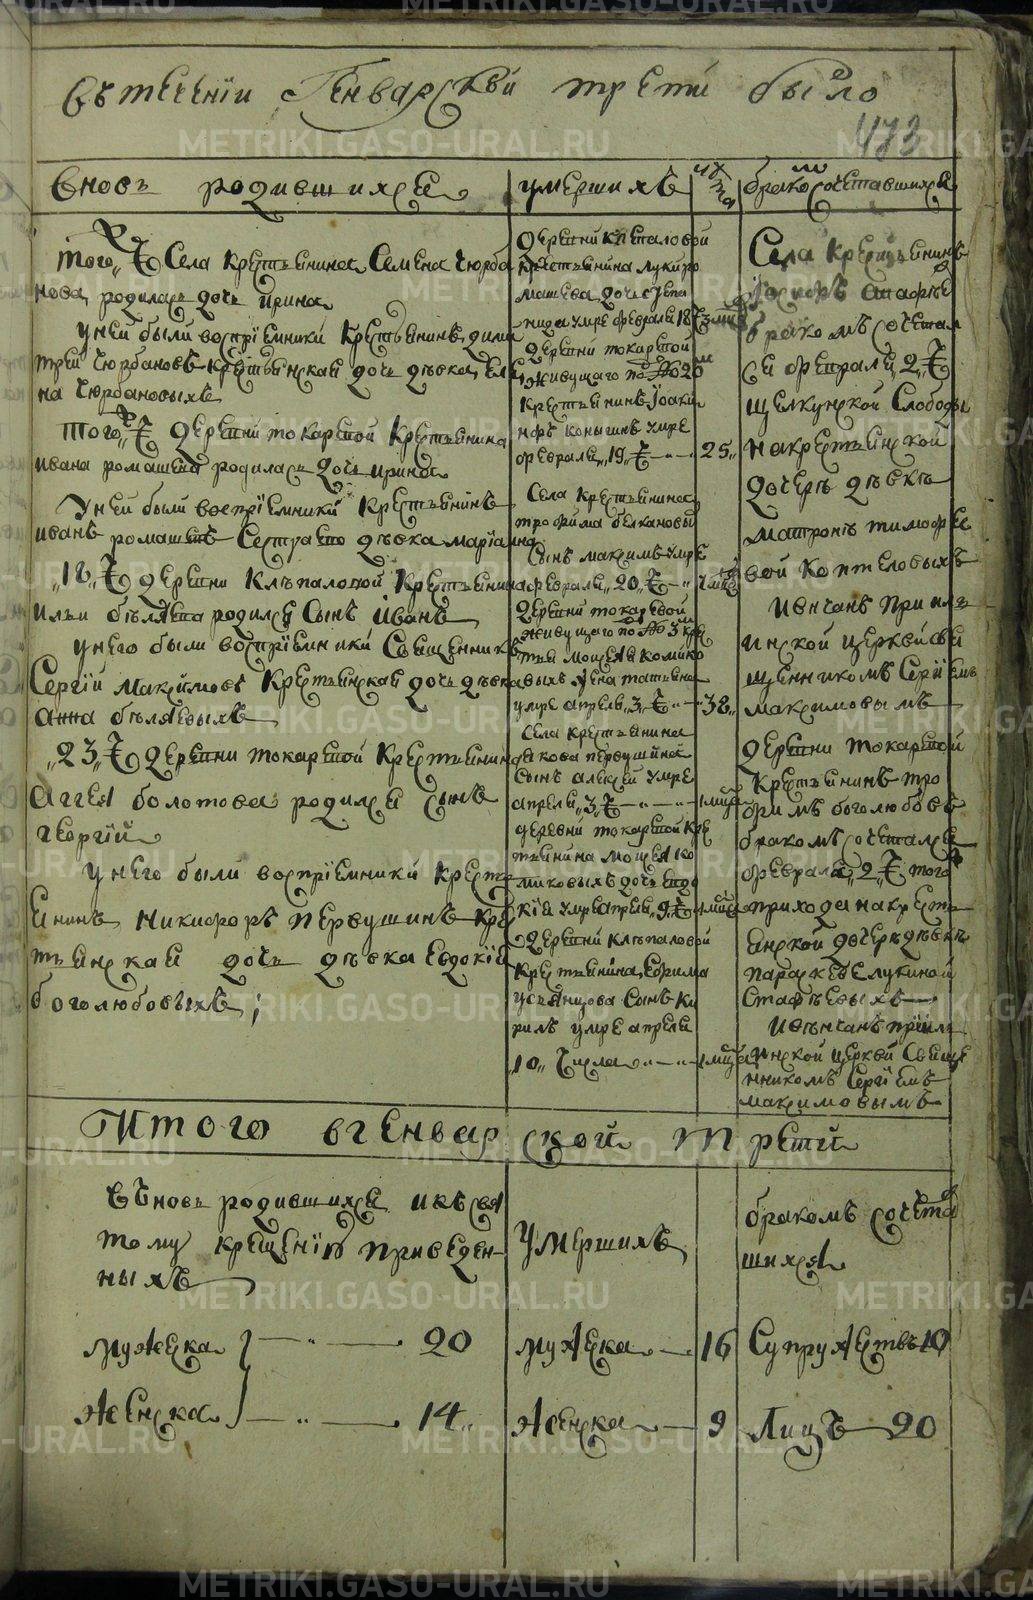 Въ течении Генварской трети было
473
Вновь родившихся
того Ч Села крестьянина Семена Чюрба
нова родилась дочь Ирина
У ней были восприемники крестьянинъ Дими
трей Чюрбановъ крестьянская дочь девка Еле
на Чюрбановыхъ
Того Ч деревни токаревой крестьянина
ивана ромашева родилась дочь ирина
У ней были восприемники крестьянинъ
иванъ ромашевъ Сестра ево девка мария
18 Ч деревни Клепаловой Крестьянина
ильи беляева родился Сынъ Иванъ
у него были восприемники Священникъ
Сергий Максимовъ Крестьянская дочь девка
анна беляевыхъ
23 Ч деревни токаревой крестьянина
Аггея болотова родился сынъ
георгий
У него были восприемники крестья
янинъ Никифоръ первушинъ кре
стьянская дочь девка Евдокия
боголюбовыхъ
умершихъ
деревни клепаловой
крестьянина луки ро
машева дочь степа
нида умре февраля 18
деревни токаревой
живущаго по
крестьянинъ Иоаки
нфъ коныгинъ умре
февраля 19 Ч 25
Села крестьянина
трофима белканова
сынъ максимъ умре
февраля 20 Ч
деревни токаревой
живущаго по
мосея комико
выхъ жена татьяна
умре апреля 3 Ч 38
села крестьянина
якова первушина
сынъ алексей умре
апреля 3 Ч
деревни токаревой кре
стьянина мосея ко
миковыхъ дочь евдо
кия умре апреля 9 Ч
деревни клепаловой
крестьянина Ефима
усьянцова сынъ ки
рилъ умре апреля
10 Числа
бракосочетавшихся
Села крестьянинъ
бракомъ сочетал
ся февраля 2 Ч
щелкунской Слободы
на крестьянской
дочере девке
матроне тимофее
вой коптеловыхъ
и венчанъ при иль
инской церкви свя
щенникомъ Сергиемъ
максимовымъ
деревни токаревой
крестьянинъ тро
фимъ боголюбовъ
бракомъ сочетался
февраля 2 Ч того
прихода на кресть
янской дочере девке
параскеве лукиной
Стафеевыхъ
и венчанъ при иль
инской церкви Священ
никомъ Сергиемъ
максимовымъ
Итого в генварской трети
Вновь родившихся и къ свя
тому крещению приведен
ныхъ
мужеска 20
женска 14
Умершихъ
мужеска 16
женска 9
бракомъ сочета
шихся
Супружествъ 10
Лицъ 20